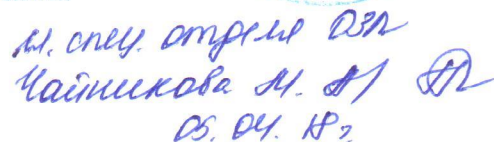 спец. отдела ОЗП
Чайникова М.
05.04.18г